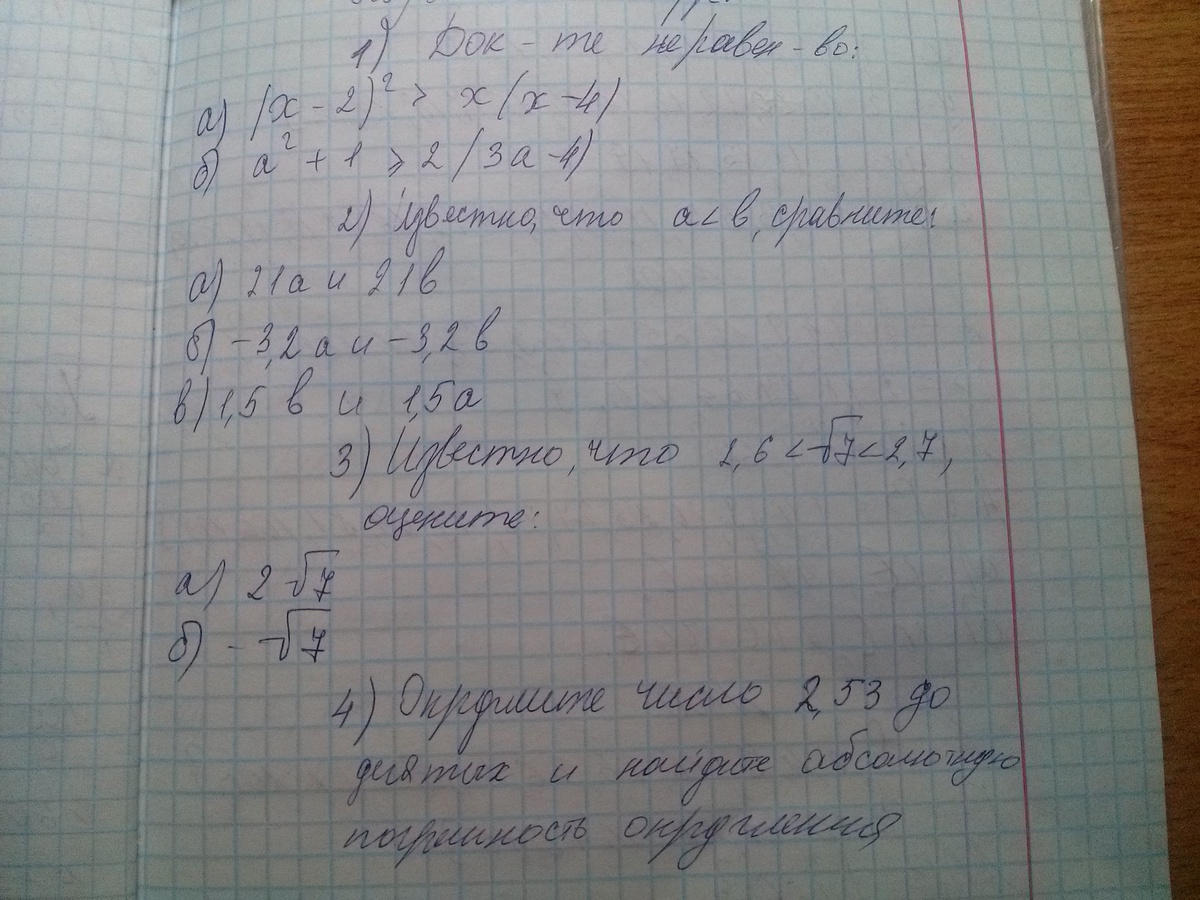 1) Док-те неравен-во:
а) (x-2)² > x(x-4)
б) a²+1 ⩾ 2(3a-4)
2) Известно, что a<в, сравните:
а) 21а и 21в
б) -3,2а и -3,2в
в) 1,5в и 1,5а
3) Известно, что 2,6<√7<2,7,
оцените:
а) 2√7
б) -√7
4) Округлите число 2,53 до
десятых и найдите абсолютную
погрешность округления